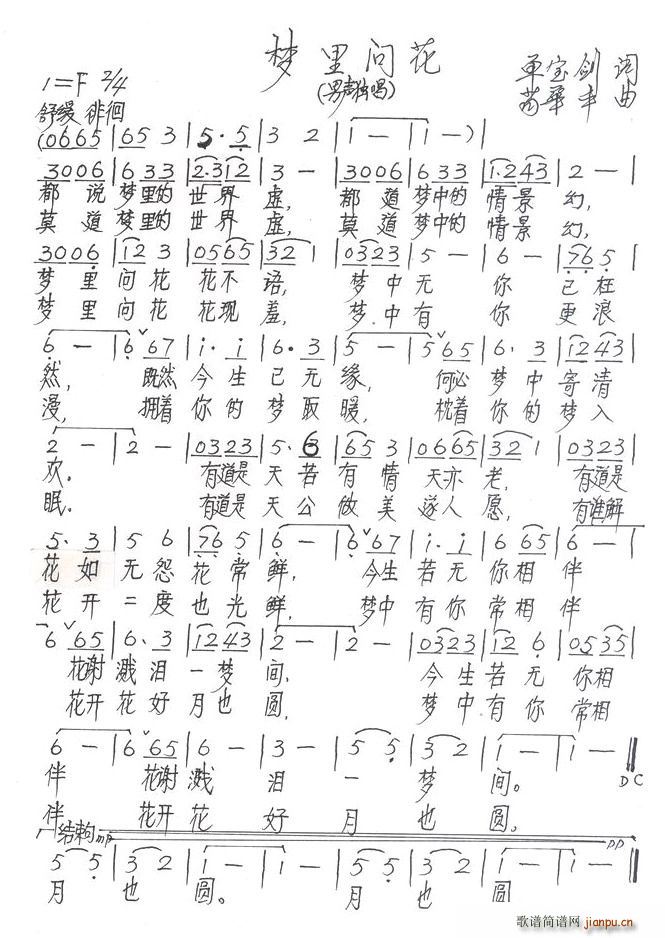 梦里问花
(男声独唱)
1=F 2/4
单宝剑 词
舒缓 徘徊
苗华丰 曲
(0665 | 653 | 5·5 | 3 2 | 1 — | 1 —) |
3006 | 633 | 2·312 | 3 — | 3006 | 633 | 1·243 | 2 — |
都说梦里的世界虚, 都道梦中的情景幻,
莫道梦里的世界虚, 莫道梦中的情景幻,
3006 | 12 3 | 0565 | 32 1 | 0323 | 5 — | 6 — | 76 5 |
梦里问花花不语, 梦中无你已枉
梦里问花花现羞, 梦中有你更浪
6 — | 6 67 | i· i | 6· 3 | 5 — | 5 65 | 6· 3 | 12 43 |
然, 既然今生已无缘, 何必梦中寄清
漫, 拥着你的梦取暖, 枕着你的梦入
2 — | 2 — | 0323 | 5· 6 | 65 3 | 0665 | 32 1 | 0323 |
欢。 有道是天若有情天亦老, 有道是
眠。 有道是天公做美遂人愿, 有谁解
5· 3 | 5 6 | 76 5 | 6 — | 6 67 | i· i | 6 65 | 6 — |
花如无怨花常鲜, 今生若无你相伴
花开二度也光鲜, 梦中有你常相伴
6 65 | 6· 3 | 12 43 | 2 — | 2 — | 0323 | 12 6 | 0535 |
花谢溅泪一梦间, 今生若无你相
花开花好月也圆, 梦中有你常相
6 — | 6 65 | 6 — | 3 — | 5 5 | 3 2 | 1 — | 1 — ‖
伴 花谢溅泪一梦间。 DC
伴, 花开花好月也圆。
结束句 mp pp
5 5 | 3 2 | 1 — | 1 — | 5 5 | 3 2 | 1 — | 1 — ‖
月也圆。 月也圆
歌谱简谱网
jianpu.cn